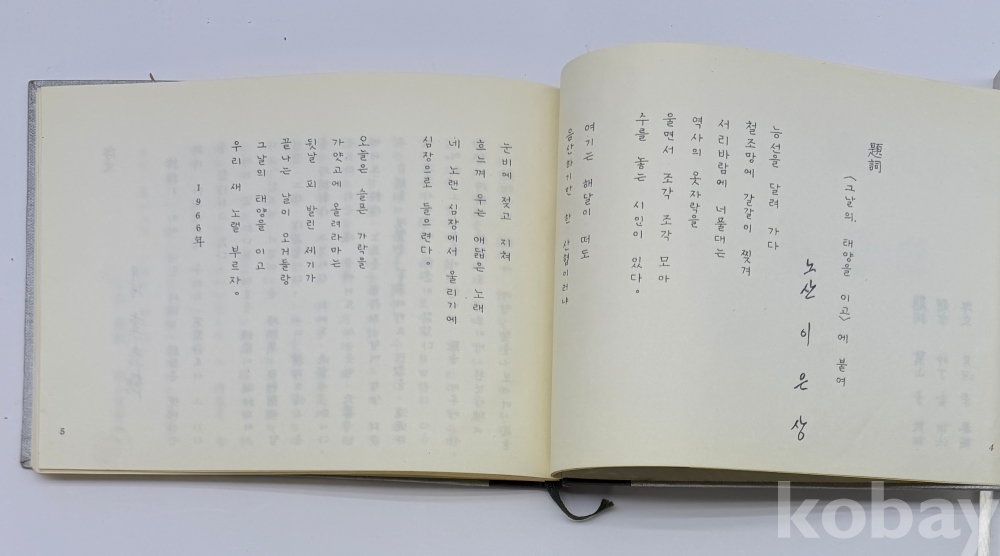 題詞
〈그날의, 태양을 이고〉에 붙여
노산 이은상
능선을 달려 가다
철조망에 갈갈이 찢겨
서리바람에 너풀대는
역사의 옷자락을
울면서 조각 조각 모아
수를 놓는 시인이 있다。
여기는 해달이 떠도
음산하기만 한 산협이러나
눈비에 젖고 지쳐
흐느껴 우는 애닯은 노래
네 노랜 심장에서 울리기에
심장으로 들으련다。
오늘은 슬픈 가락을
가얏고에 올려라마는
뒷날 피 발린 세기가
끝나는 날이 오거들랑
그날의 태양을 이고
우리 새 노랠 부르자。
1966年
4
5
kobay